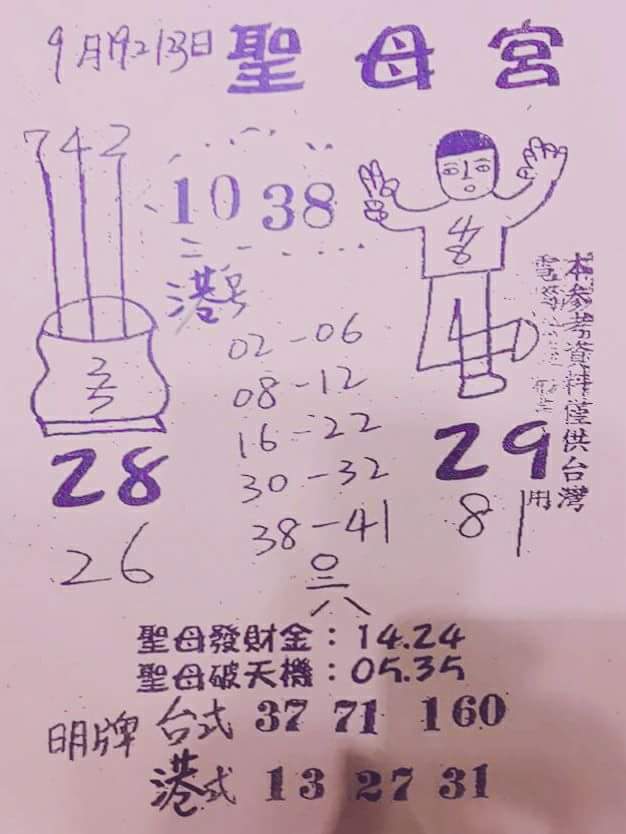 9月192123日 聖母宮
742
10 38
港号
4
8
3
5
02-06
08-12
16-22
30-32
38-41
28
29
26
81
○
三
八
本參考資料僅供台灣
用
聖母發財金：14.24
聖母破天機：05.35
明牌 台式 37 71 160
港式 13 27 31